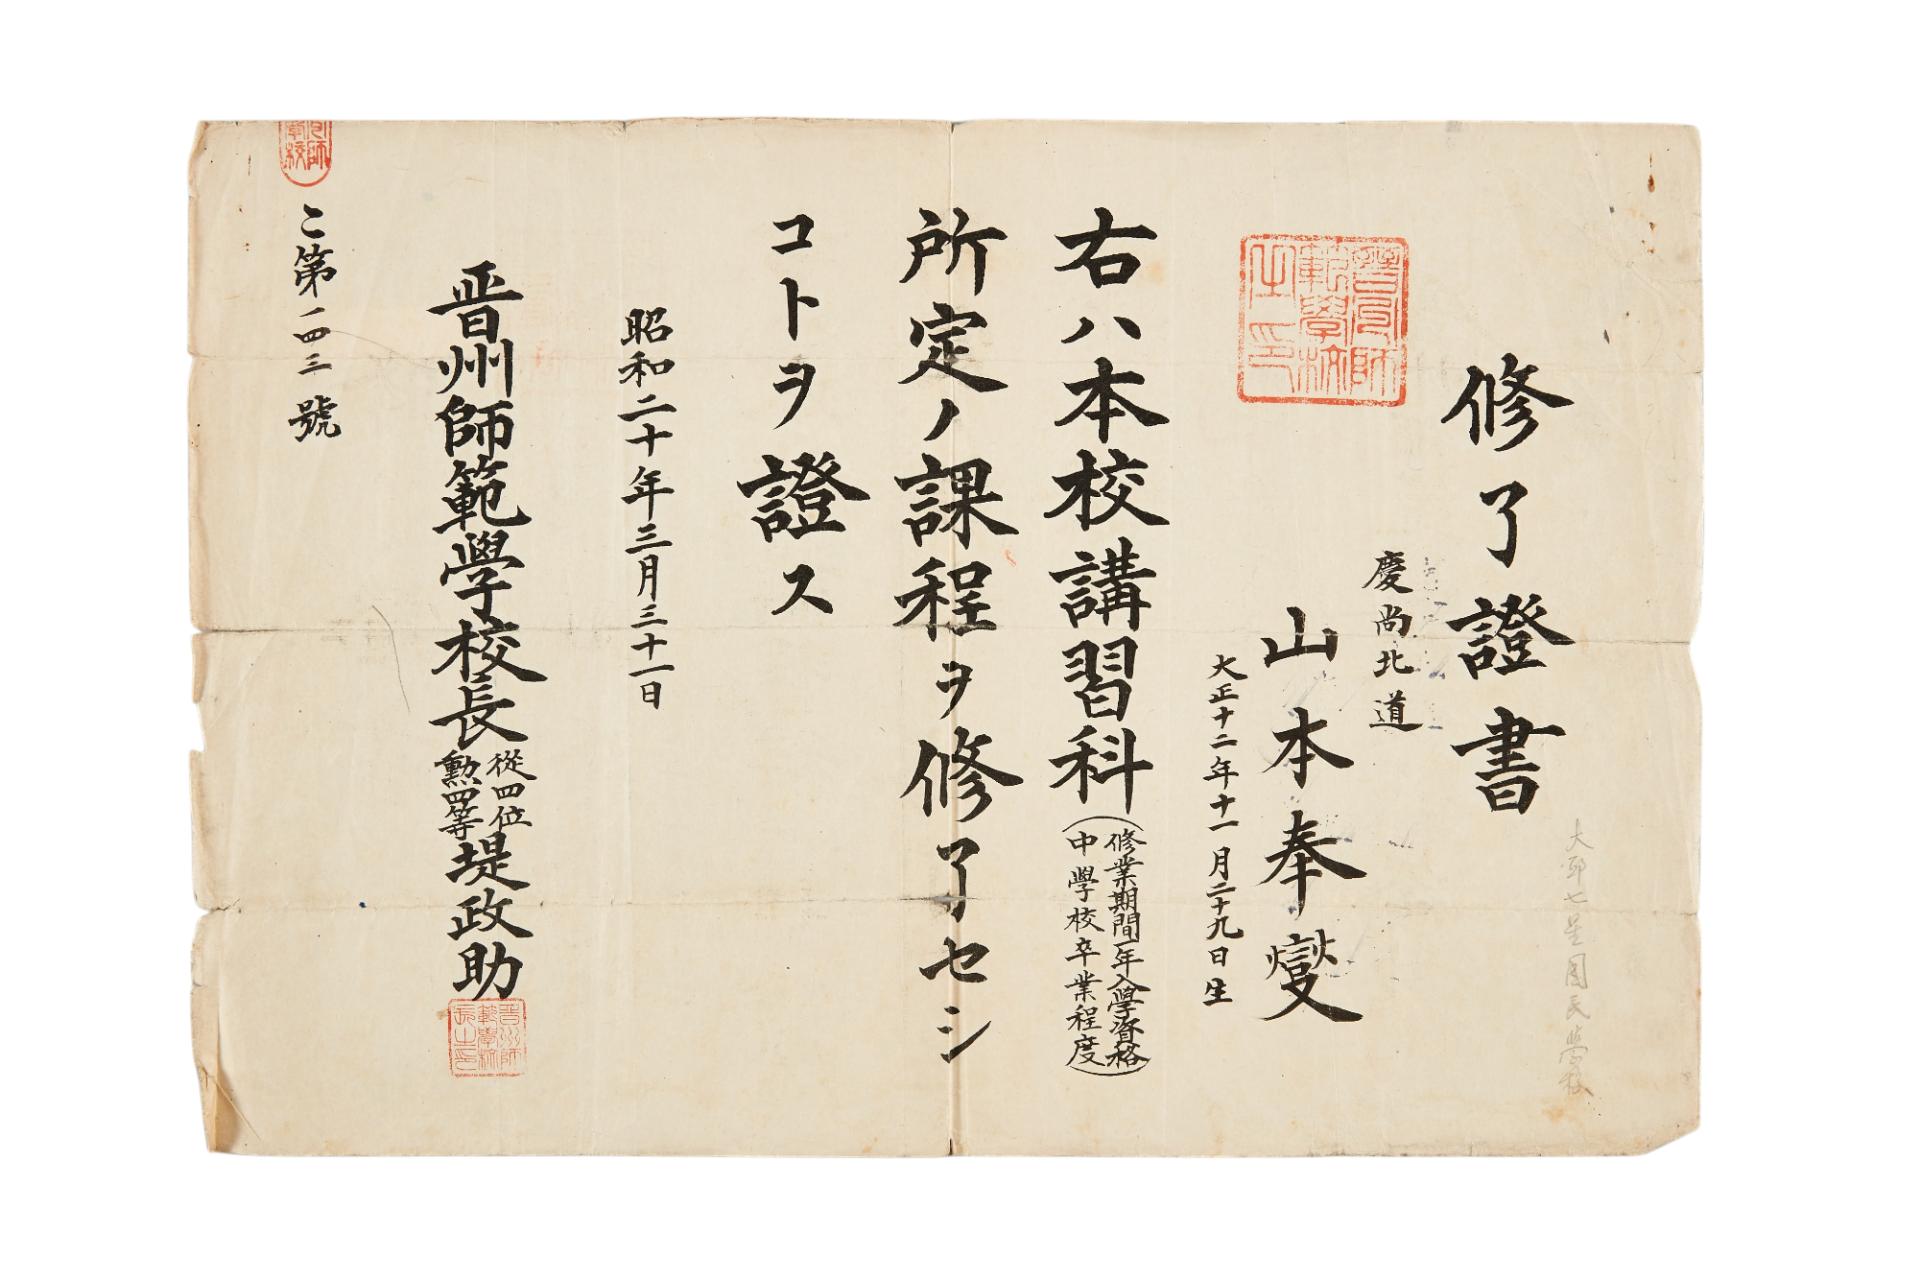 修了證書
慶尚北道
山本奉燮
大正十二年十一月二十九日生
右ハ本校講習科(修業期間一年入學資格
中學校卒業程度)
所定ノ課程ヲ修了セシ
コトヲ證ス
昭和二十年三月三十一日
晋州師範學校長從四位
勲四等堤政助
こ第一四三號
晋州師範學校之印
晋州師範學校長之印
大邱七星國民學校